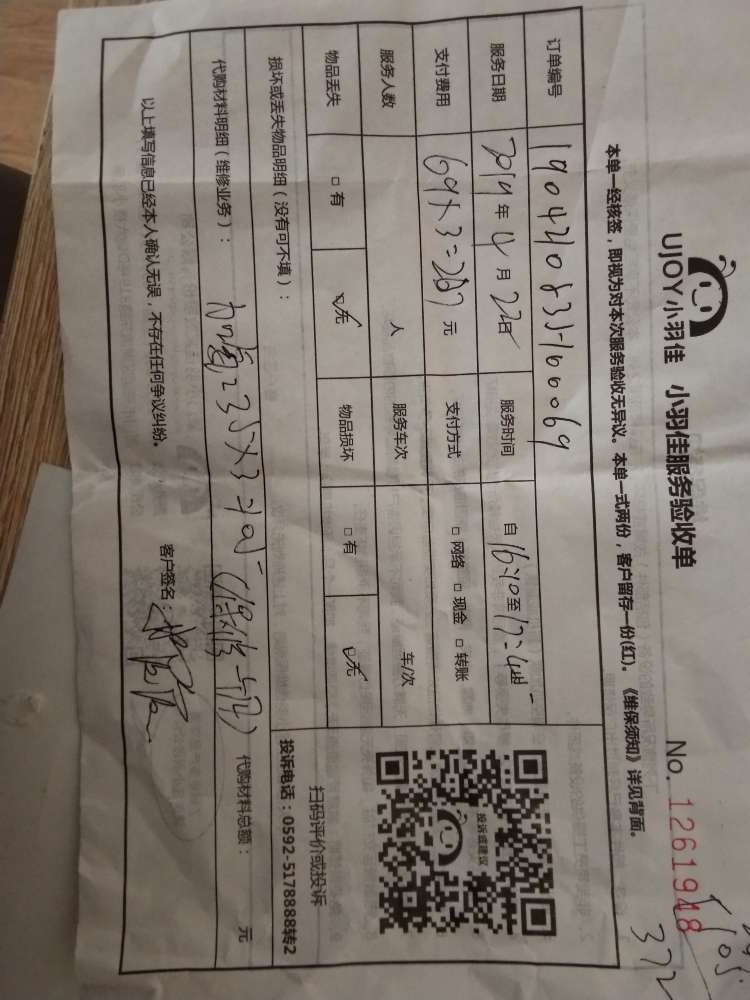 UJOY 小羽佳 小羽佳服务验收单 No. 1261948
本单一经核签，即视为对本次服务验收无异议。本单一式两份，客户留存一份(红)。《维保须知》详见背面。
订单编号 1904210835100069
服务日期 2019年4月22日 服务时间 自16:10至17:4
支付费用 69×3=207元 支付方式 □网络 □现金 □转账
服务人数 人 服务车次 车/次
物品丢失 □有 ☑无 物品损坏 □有 ☑无
损坏或丢失物品明细（没有可不填）：
代购材料明细（维修业务）： 35×3=105 代购材料总额： 元
以上填写信息已经本人确认无误，不存在任何争议纠纷。 客户签名：
投诉或建议
扫码评价或投诉
投诉电话：0592-5178888转2
105
372